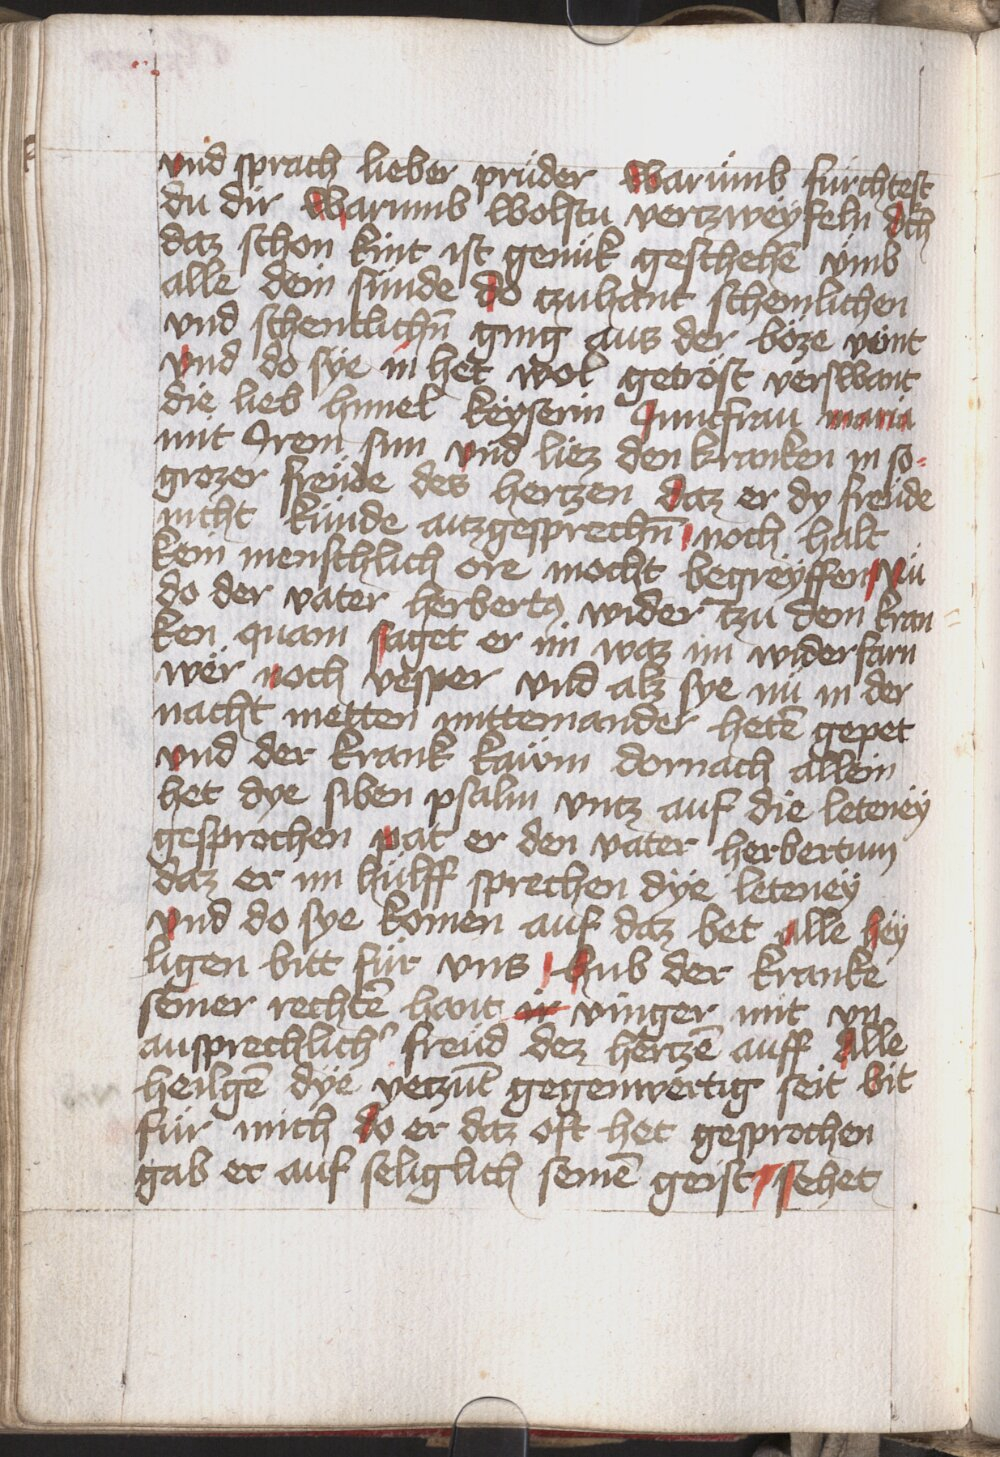 vnd sprach lieber prüder Warümb fürchtest
du dir Warumb Wolstu vertzweyfeln dich
daz schon kint ist genük geschehē vmb
alle dein sünde do tzuhant schemlichen
vnd schentlichn̄ ging aus der böze veint
vnd do sye in het wol getröst verswant
die lieb himel keyserin Junckfrau maria
mit Irem sun vnd liez den kranken in so
grozer freüde des hertzen daz er dy freüde
nicht künde auzgesprechn̄ noch halt
kein menschlich ore mocht begreyffen Nü
do der vater herbert9 wider tzu dem kran
ken quam saget er im waz im widerfarn
wër noch vesper vnd alz sye nü in der
nacht metten mitteinander hetē gepet
vnd der krank kawm dornach allein
het dye siben psalm vntz auf die leteney
gesprochen pat er den vater herbertum
daz er im hülff sprechen dye leteney
vnd do sye komen auf daz bet alle hey
ligen bitt für vns hub der kranke
seiner rechtē hant ir vinger mit vn
ausprechlich' freüd dez hertzē auff Alle
heilgē dye yetzūt gegenwertig seit bit
für mich do er daz oft het gesprochen
gab er auf seliglich seinē geist sehet